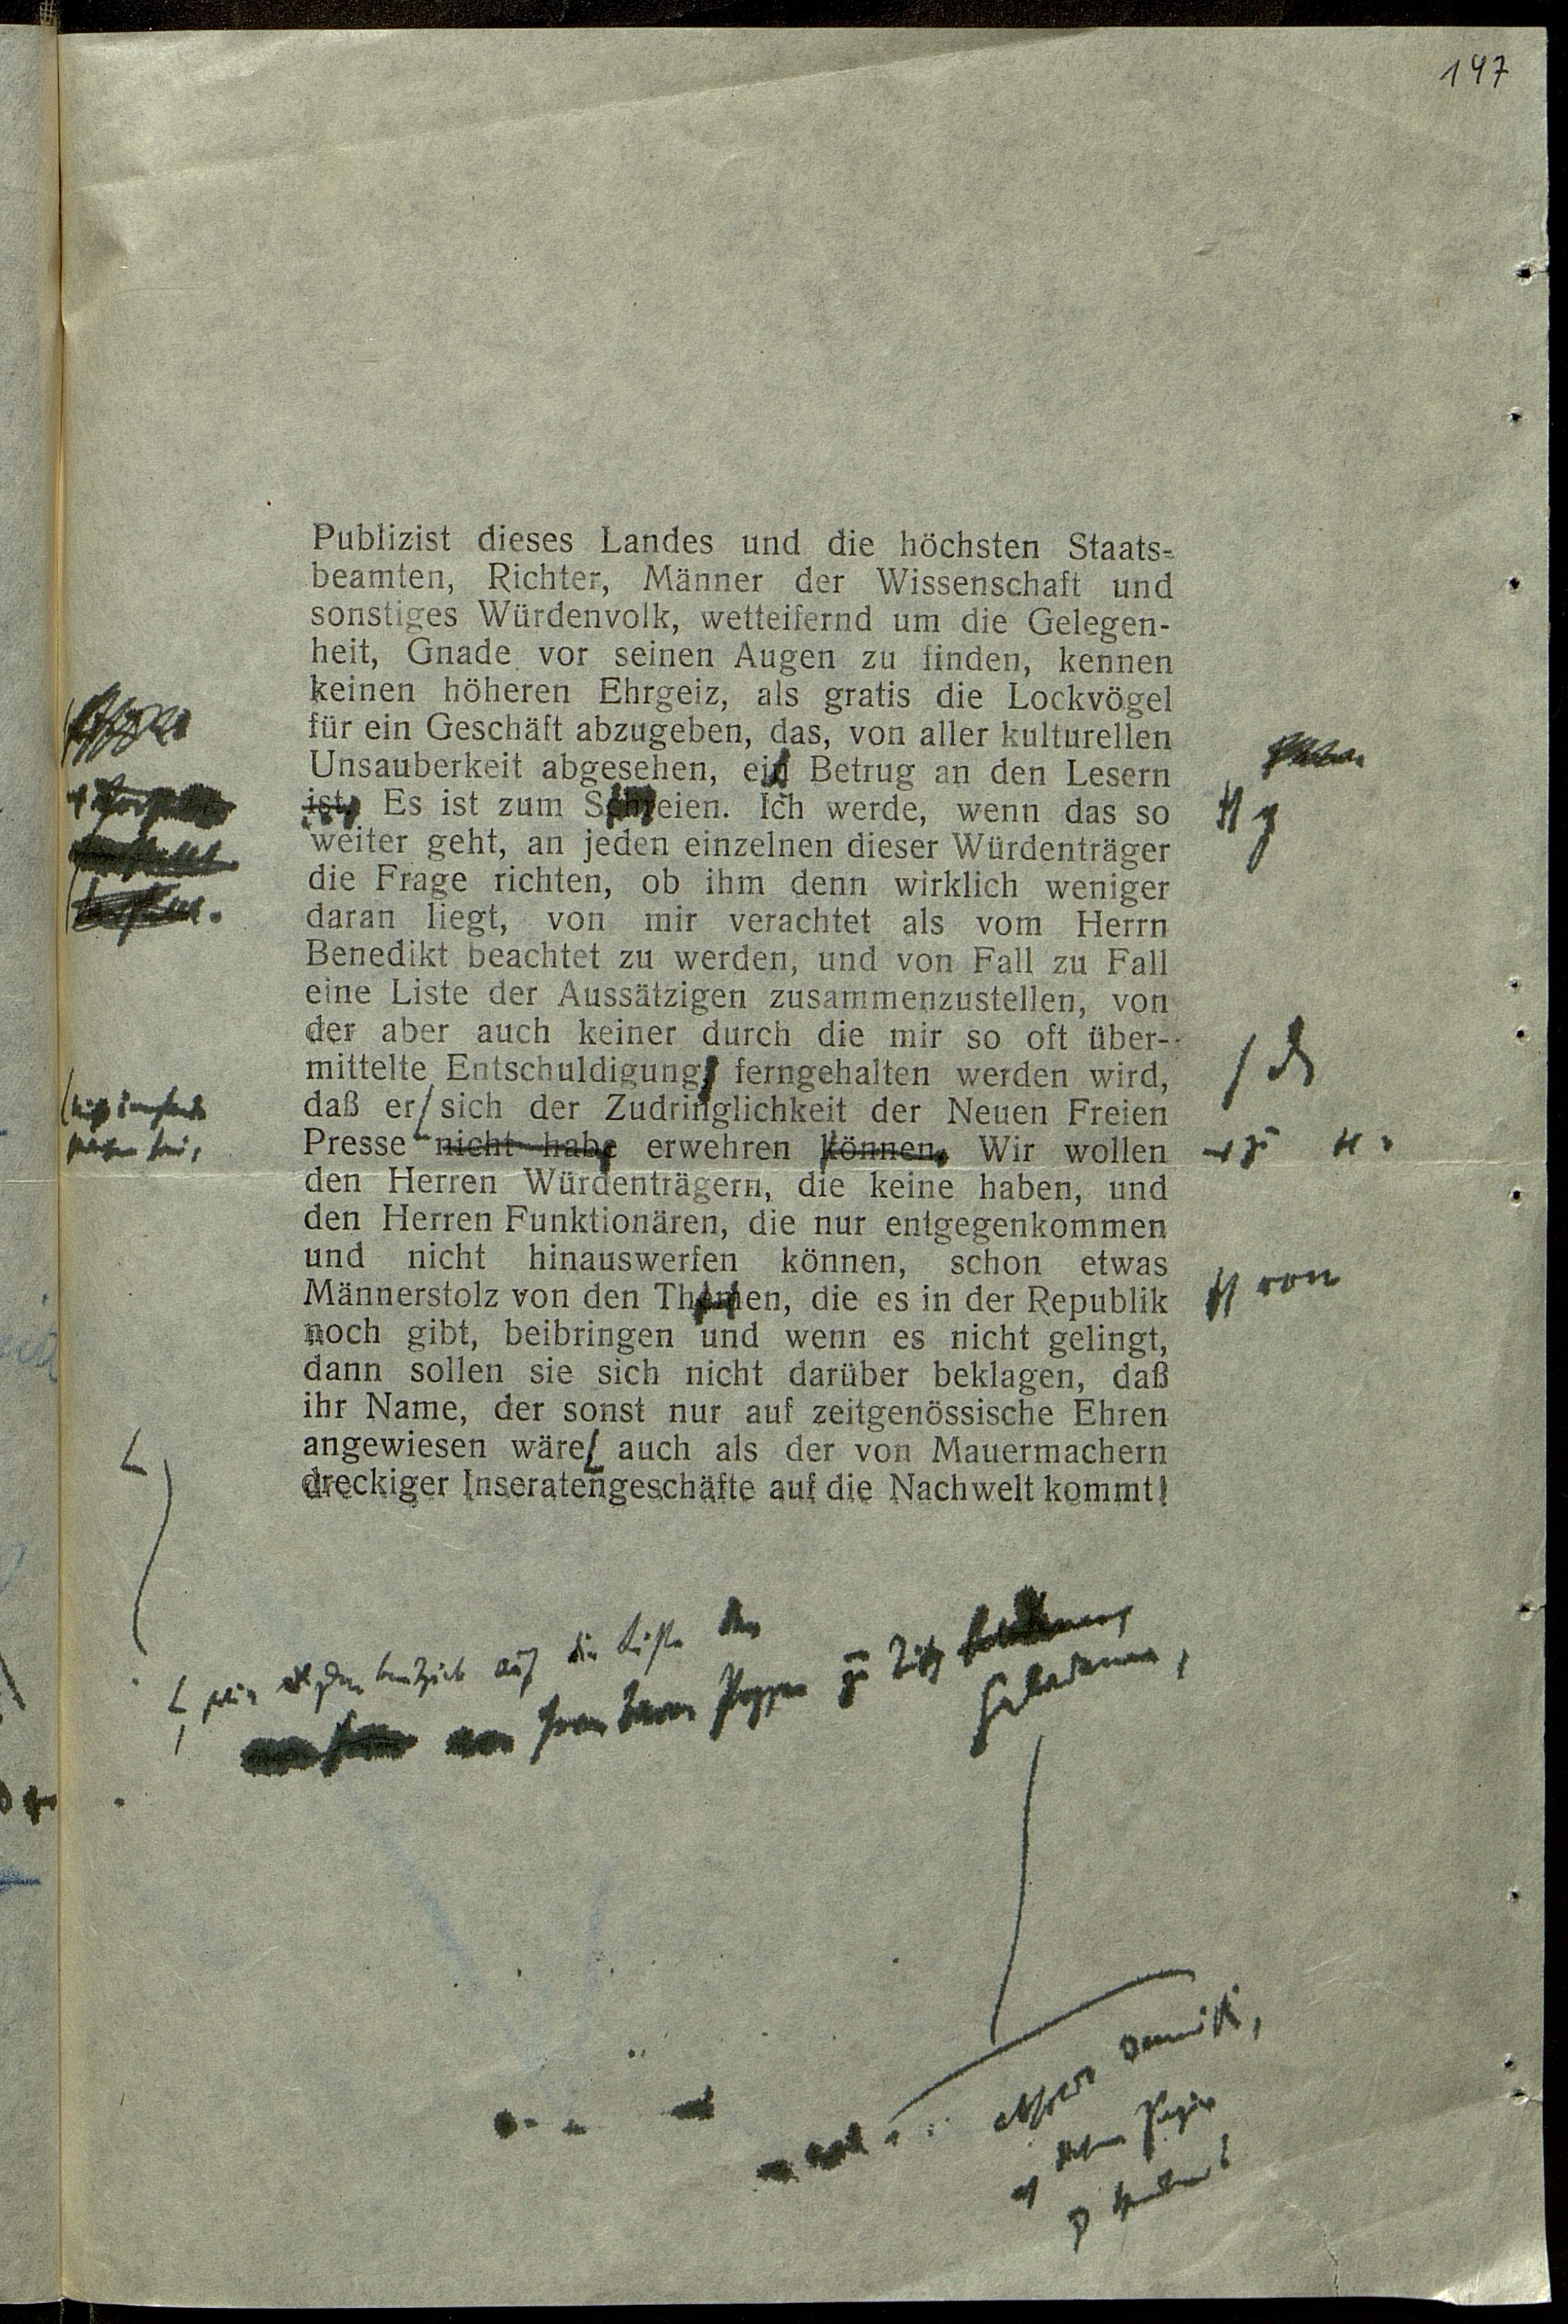 147
Publizist dieses Landes und die höchsten Staats-
beamten, Richter, Männer der Wissenschaft und
sonstiges Würdenvolk, wetteifernd um die Gelegen-
heit, Gnade vor seinen Augen zu finden, kennen
keinen höheren Ehrgeiz, als gratis die Lockvögel
für ein Geschäft abzugeben, das, von aller kulturellen
Unsauberkeit abgesehen, ein Betrug an den Lesern
ist. Es ist zum Schreien. Ich werde, wenn das so
weiter geht, an jeden einzelnen dieser Würdenträger
die Frage richten, ob ihm denn wirklich weniger
daran liegt, von mir verachtet als vom Herrn
Benedikt beachtet zu werden, und von Fall zu Fall
eine Liste der Aussätzigen zusammenzustellen, von
der aber auch keiner durch die mir so oft über-
mittelte Entschuldigung ferngehalten werden wird,
daß er sich der Zudringlichkeit der Neuen Freien
Presse nicht habe erwehren können. Wir wollen
zu
den Herren Würdenträgern, die keine haben, und
den Herren Funktionären, die nur entgegenkommen
und nicht hinauswerfen können, schon etwas
Männerstolz von den Thronen, die es in der Republik
von
noch gibt, beibringen und wenn es nicht gelingt,
dann sollen sie sich nicht darüber beklagen, daß
ihr Name, der sonst nur auf zeitgenössische Ehren
angewiesen wäre, auch als der von Mauermachern
dreckiger Inseratengeschäfte auf die Nachwelt kommt!
auf die Liste der
zu
Geladenen,